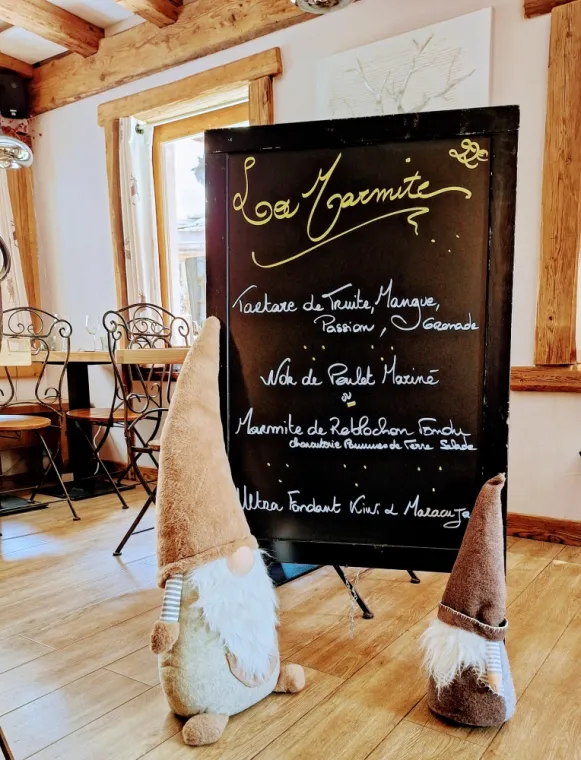 La Marmite
22€
Tartare de Truite, Mangue,
Passion, Grenade
Wok de Poulet Mariné
ou
Marmite de Reblochon Fondu
charcuterie Pommes de Terre Salade
Ultra Fondant Kiwi et Maracuja